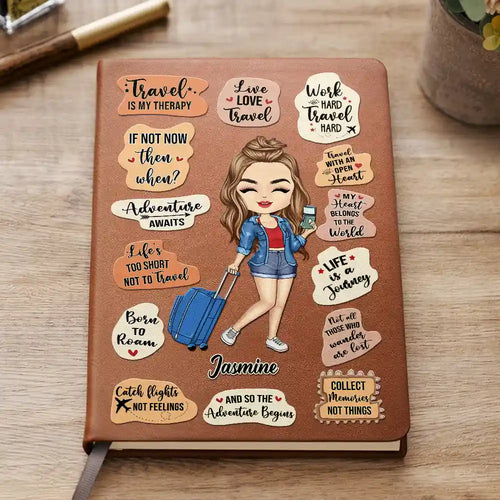 Travel
IS MY THERAPY
Live
LOVE
Travel
Work
HARD
Travel
HARD
IF NOT NOW
then
when?
Travel
WITH AN
OPEN
Heart
Adventure
AWAITS
MY
Heart
BELONGS
TO THE
World
Life's
TOO SHORT
NOT TO Travel
LIFE
is a
Journey
Born
TO
Roam
Not all
THOSE WHO
wander
are lost
Jasmine
Catch flights
NOT FEELINGS
AND SO THE
Adventure Begins
COLLECT
Memories
NOT THINGS